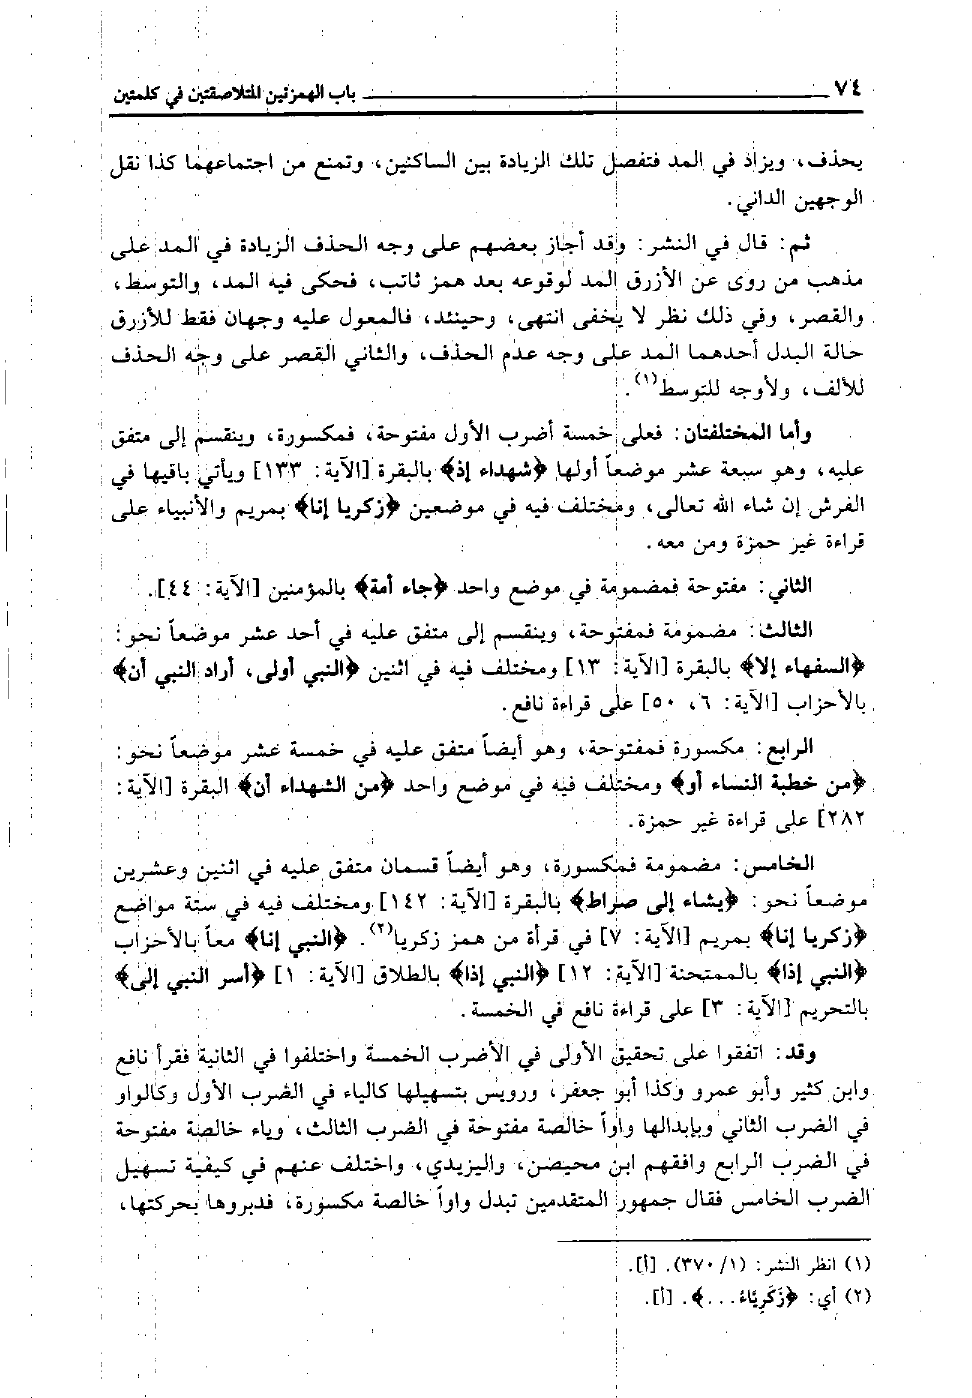 ٧٤ باب الهمزتين المتلاصقتين في كلمتين
يحذف، ويزاد في المد فتفصل تلك الزيادة بين الساكنين، وتمنع من اجتماعهما كذا نقل
الوجهين الداني.
ثم: قال في النشر: وقد أجاز بعضهم على وجه الحذف الزيادة في المد على
مذهب من روى عن الأزرق المد لوقوعه بعد همز ثابت، فحكى فيه المد، والتوسط،
والقصر، وفي ذلك نظر لا يخفى انتهى، وحينئد، فالمعول عليه وجهان فقط للأزرق
حالة البدل أحدهما المد على وجه عدم الحذف، والثاني القصر على وجه الحذف
للألف، ولأوجه للتوسط(١).
وأما المختلفتان: فعلى خمسة أضرب الأول مفتوحة، فمكسورة، وينقسم إلى متفق
عليه، وهو سبعة عشر موضعاً أولها ﴿شهداء إذ﴾ بالبقرة [الآية: ١٣٣] ويأتي باقيها في
الفرش إن شاء الله تعالى، ومختلف فيه في موضعين ﴿زكريا إنا﴾ بمريم والأنبياء على
قراءة غير حمزة ومن معه.
الثاني: مفتوحة فمضمومة في موضع واحد ﴿جاء أمة﴾ بالمؤمنين [الآية: ٤٤].
الثالث: مضمومة فمفتوحة، وينقسم إلى متفق عليه في أحد عشر موضعاً نحو:
﴿السفهاء إلا﴾ بالبقرة [الآية: ١٣] ومختلف فيه في اثنين ﴿النبي أولى، أراد النبي أن﴾
بالأحزاب [الآية: ٦، ٥٠] على قراءة نافع.
الرابع: مكسورة فمفتوحة، وهو أيضاً متفق عليه في خمسة عشر موضعاً نحو:
﴿من خطبة النساء أو﴾ ومختلف فيه في موضع واحد ﴿من الشهداء أن﴾ البقرة [الآية:
٢٨٢] على قراءة غير حمزة.
الخامس: مضمومة فمكسورة، وهو أيضاً قسمان متفق عليه في اثنين وعشرين
موضعاً نحو: ﴿يشاء إلى صراط﴾ بالبقرة [الآية: ١٤٢] ومختلف فيه في ستة مواضع
﴿زكريا إنا﴾ بمريم [الآية: ٧] في قرأة من همز زكريا(٢). ﴿النبي إنا﴾ معاً بالأحزاب
﴿النبي إذا﴾ بالممتحنة [الآية: ١٢] ﴿النبي إذا﴾ بالطلاق [الآية: ١] ﴿أسر النبي إلى﴾
بالتحريم [الآية: ٣] على قراءة نافع في الخمسة.
وقد: اتفقوا على تحقيق الأولى في الأضرب الخمسة واختلفوا في الثانية فقرأ نافع
وابن كثير وأبو عمرو وكذا أبو جعفر، ورويس بتسهيلها كالياء في الضرب الأول وكالواو
في الضرب الثاني وبإبدالها واواً خالصة مفتوحة في الضرب الثالث، وياء خالصة مفتوحة
في الضرب الرابع وافقهم ابن محيصن، واليزيدي، واختلف عنهم في كيفية تسهيل
الضرب الخامس فقال جمهور المتقدمين تبدل واواً خالصة مكسورة، فدبروها بحركتها،
(١) انظر النشر: (١/ ٣٧٠). [أ].
(٢) أي: ﴿زَكَرِيَّاءُ...﴾. [أ].